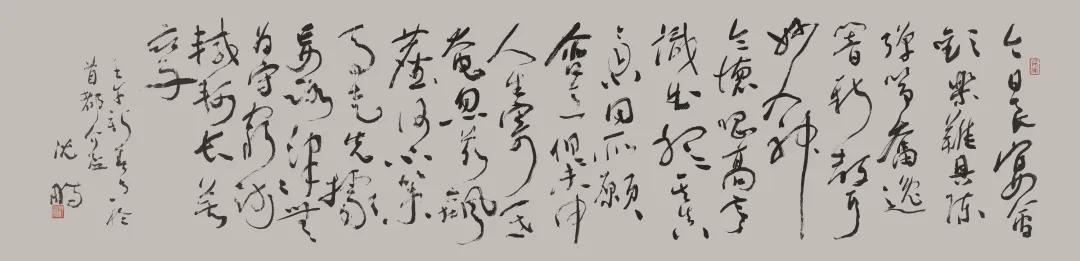 今日良宴會
歡樂難具陳
彈筝奮逸
響新聲
妙入神
令德唱高言
識曲聽其真
齊心同所願
含意俱未申
人生寄一世
奄忽若飆
塵何不策
高足先據
要路津無
為守窮賤
轗軻長苦
辛
壬午新春於
首都介居
沈鵬